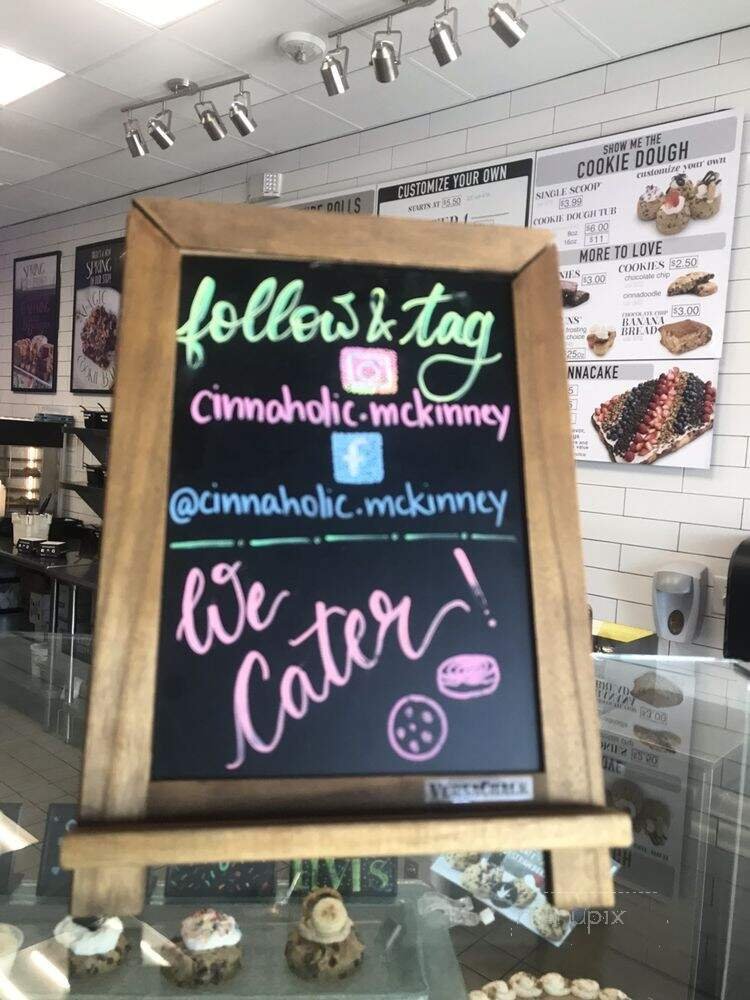 follow & tag
cinnaholic.mckinney
@cinnaholic.mckinney
We
Cater!
VERSACHALK
ROLLS
CUSTOMIZE YOUR OWN
STARTS AT $5.50
SHOW ME THE
COOKIE DOUGH
customize your own
SINGLE SCOOP
$3.99
COOKIE DOUGH TUB
8oz $6.00
16oz $11
MORE TO LOVE
COOKIES $2.50
chocolate chip
$3.00
cinnadoodle
$3.00
CHOCOLATE CHIP
BANANA
BREAD
frosting
choice
25¢
NNACAKE
SPRING
SPRING
ELVIS